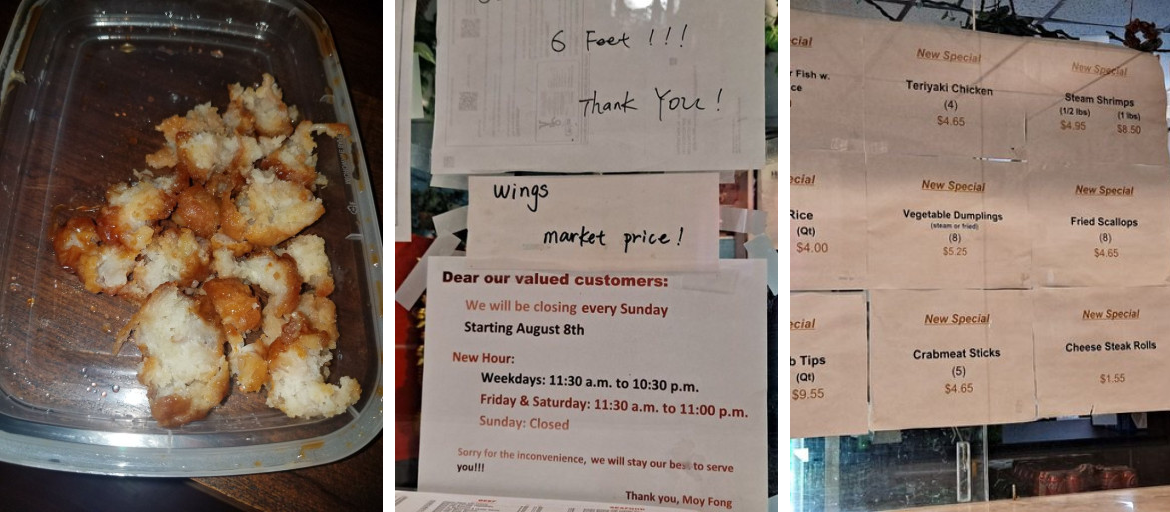 6 Feet !!!
Thank You!
Wings
market price!
Dear our valued customers:
We will be closing every Sunday
Starting August 8th
New Hour:
Weekdays: 11:30 a.m. to 10:30 p.m.
Friday & Saturday: 11:30 a.m. to 11:00 p.m.
Sunday: Closed
Sorry for the inconvenience, we will stay our best to serve
you!!!
Thank you, Moy Fong
cial
r Fish w.
ce
New Special
Teriyaki Chicken
(4)
$4.65
New Special
Steam Shrimps
(1/2 lbs) (1 lbs)
$4.95 $8.50
ecial
Rice
(Qt)
$4.00
New Special
Vegetable Dumplings
(steam or fried)
(8)
$5.25
New Special
Fried Scallops
(8)
$4.65
ecial
b Tips
(Qt)
$9.55
New Special
Crabmeat Sticks
(5)
$4.65
New Special
Cheese Steak Rolls
$1.55